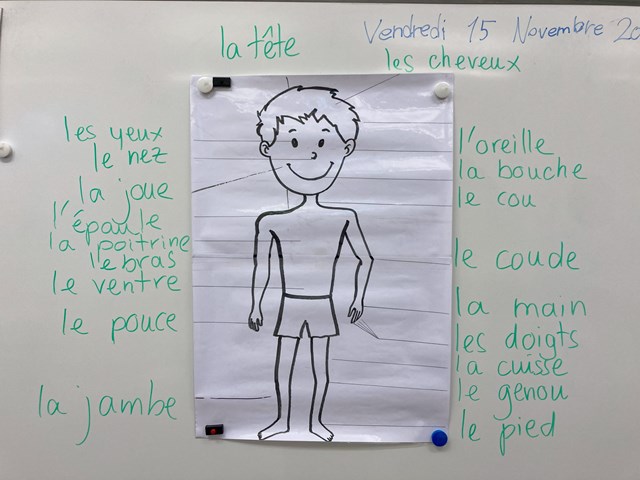 la tête
Vendredi 15 Novembre
les cheveux
les yeux
le nez
la joue
l'épaule
la poitrine
le bras
le ventre
le pouce
la jambe
l'oreille
la bouche
le cou
le coude
la main
les doigts
la cuisse
le genou
le pied